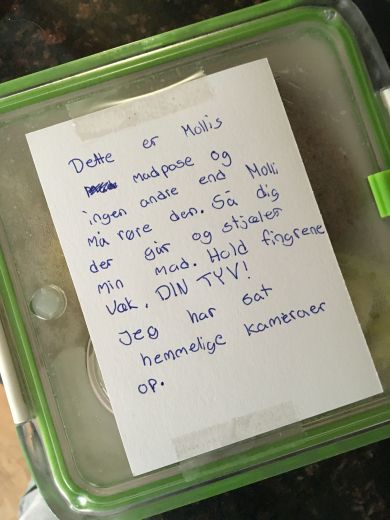 Dette er Mollis
madpose og
ingen andre end Molli
må røre den. Så dig
der går og stjæler
min mad. Hold fingrene
væk. DIN TYV!
Jeg har sat
hemmelige kameraer
op.